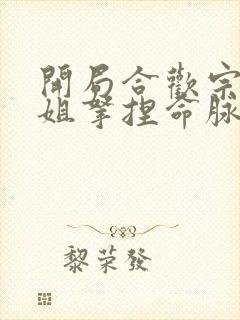 開局合歡宗
姐拏捏命脉
黎荣發